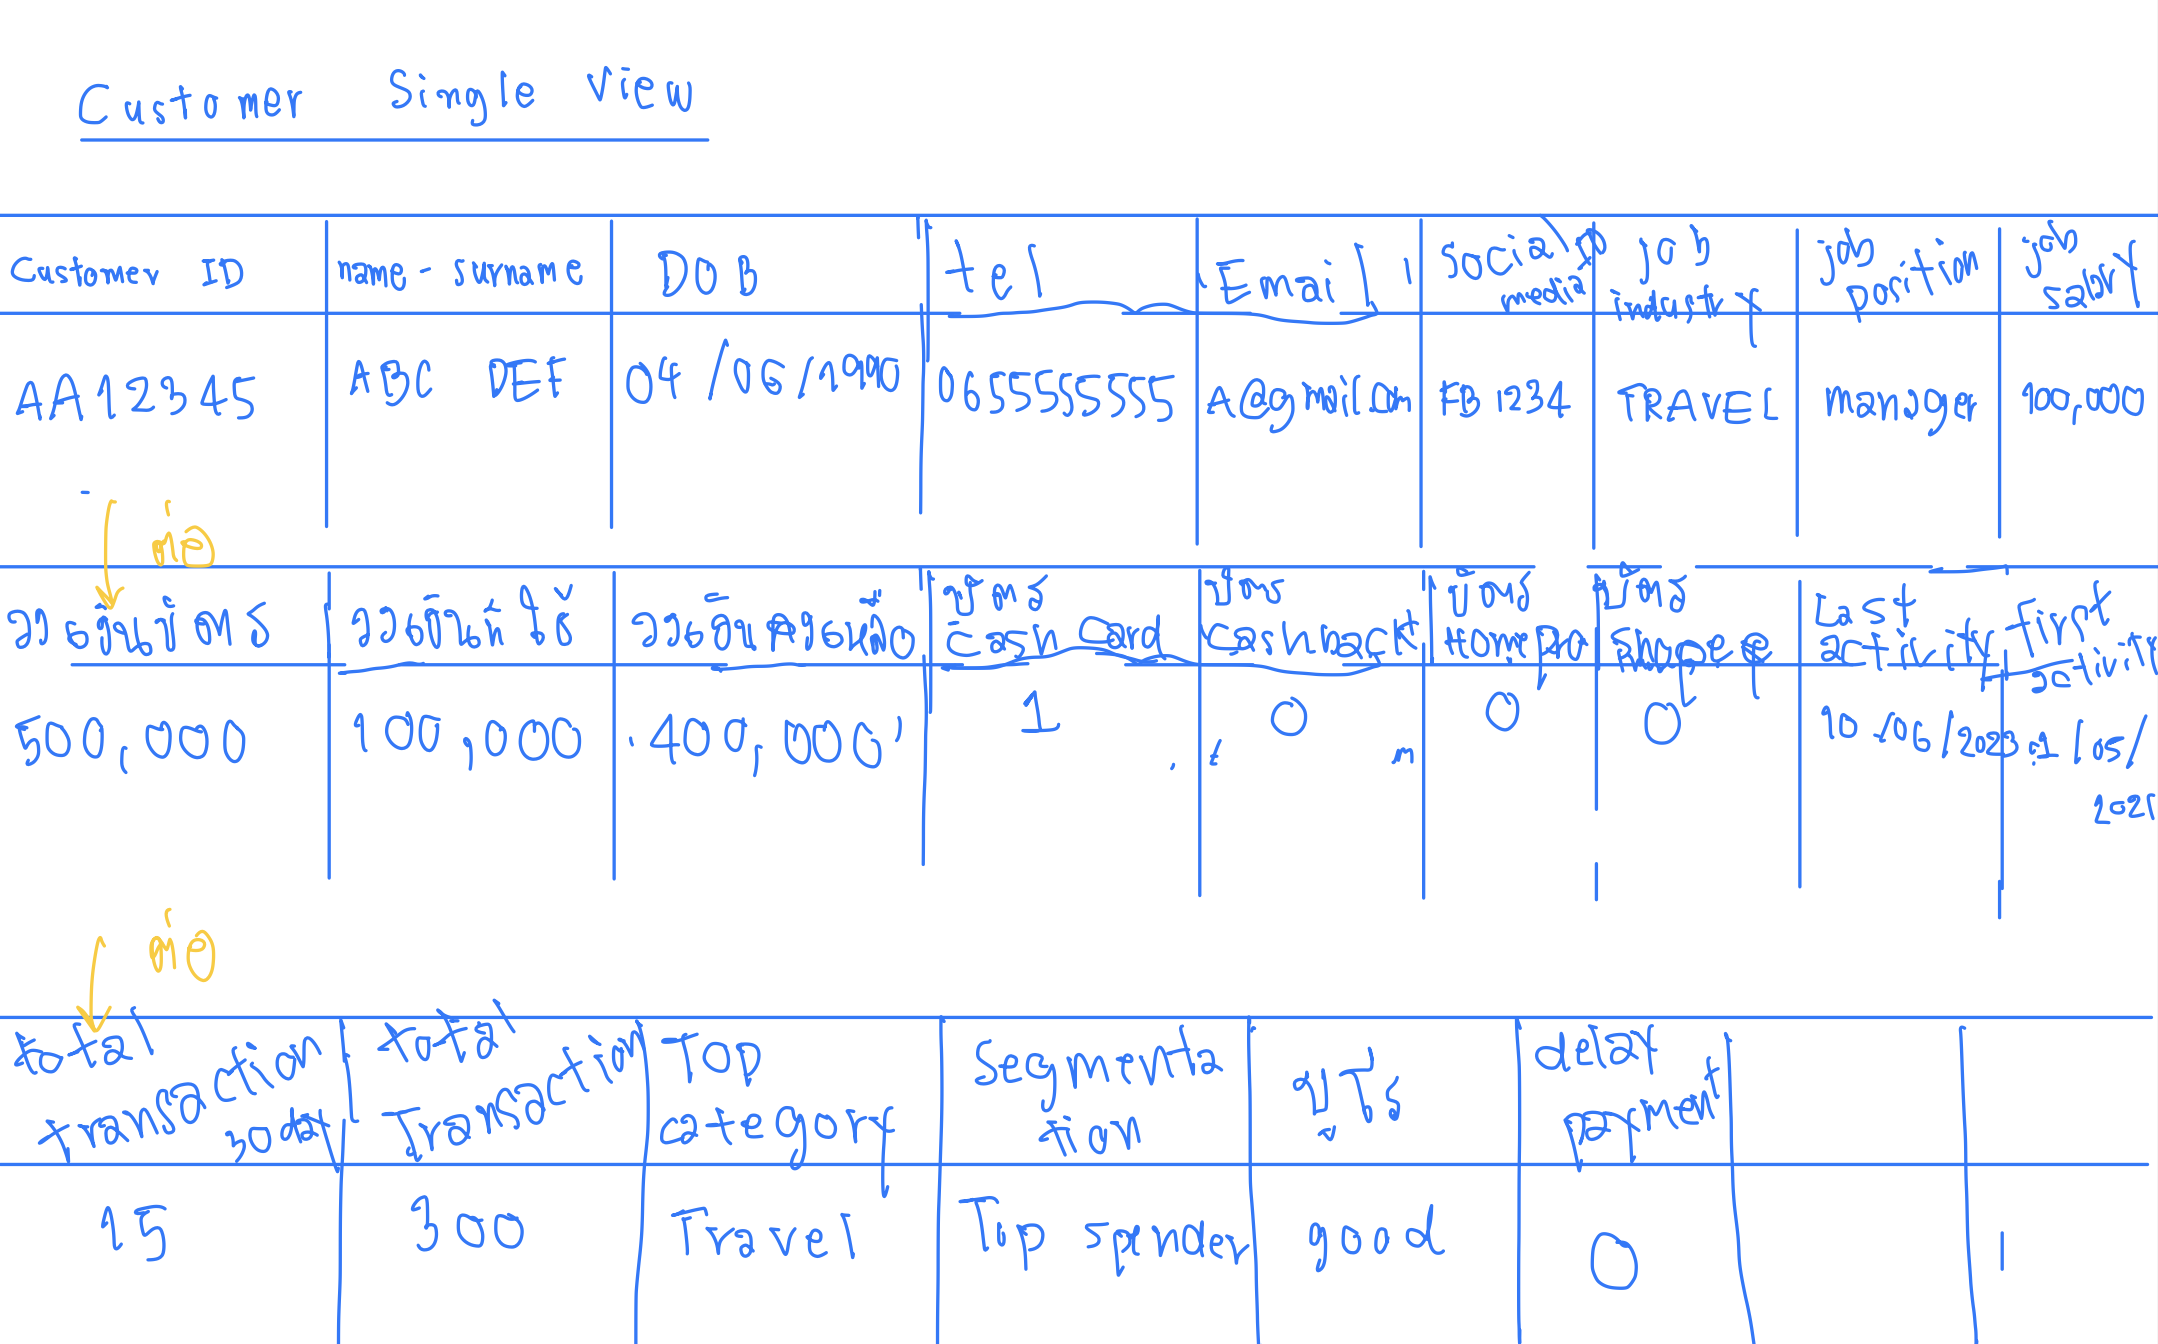 Customer Single View
Customer ID name - surname DOB tel Email Social media ID job industry job position job salary
AA12345 ABC DEF 04/06/1990 0655555555 A@gmail.com FB1234 TRAVEL manager 100,000
ต่อ
วงเงินบัตร วงเงินที่ใช้ วงเงินคงเหลือ บัตร cash card บัตร cashback บัตร Homepro บัตร shopee Last activity First activity
500,000 100,000 400,000 1 0 0 0 10/06/2023 1/05/
2021
ต่อ
total transaction 30 day total Transaction Top category Segmentation บูโร delay payment
15 300 Travel Top spender good 0